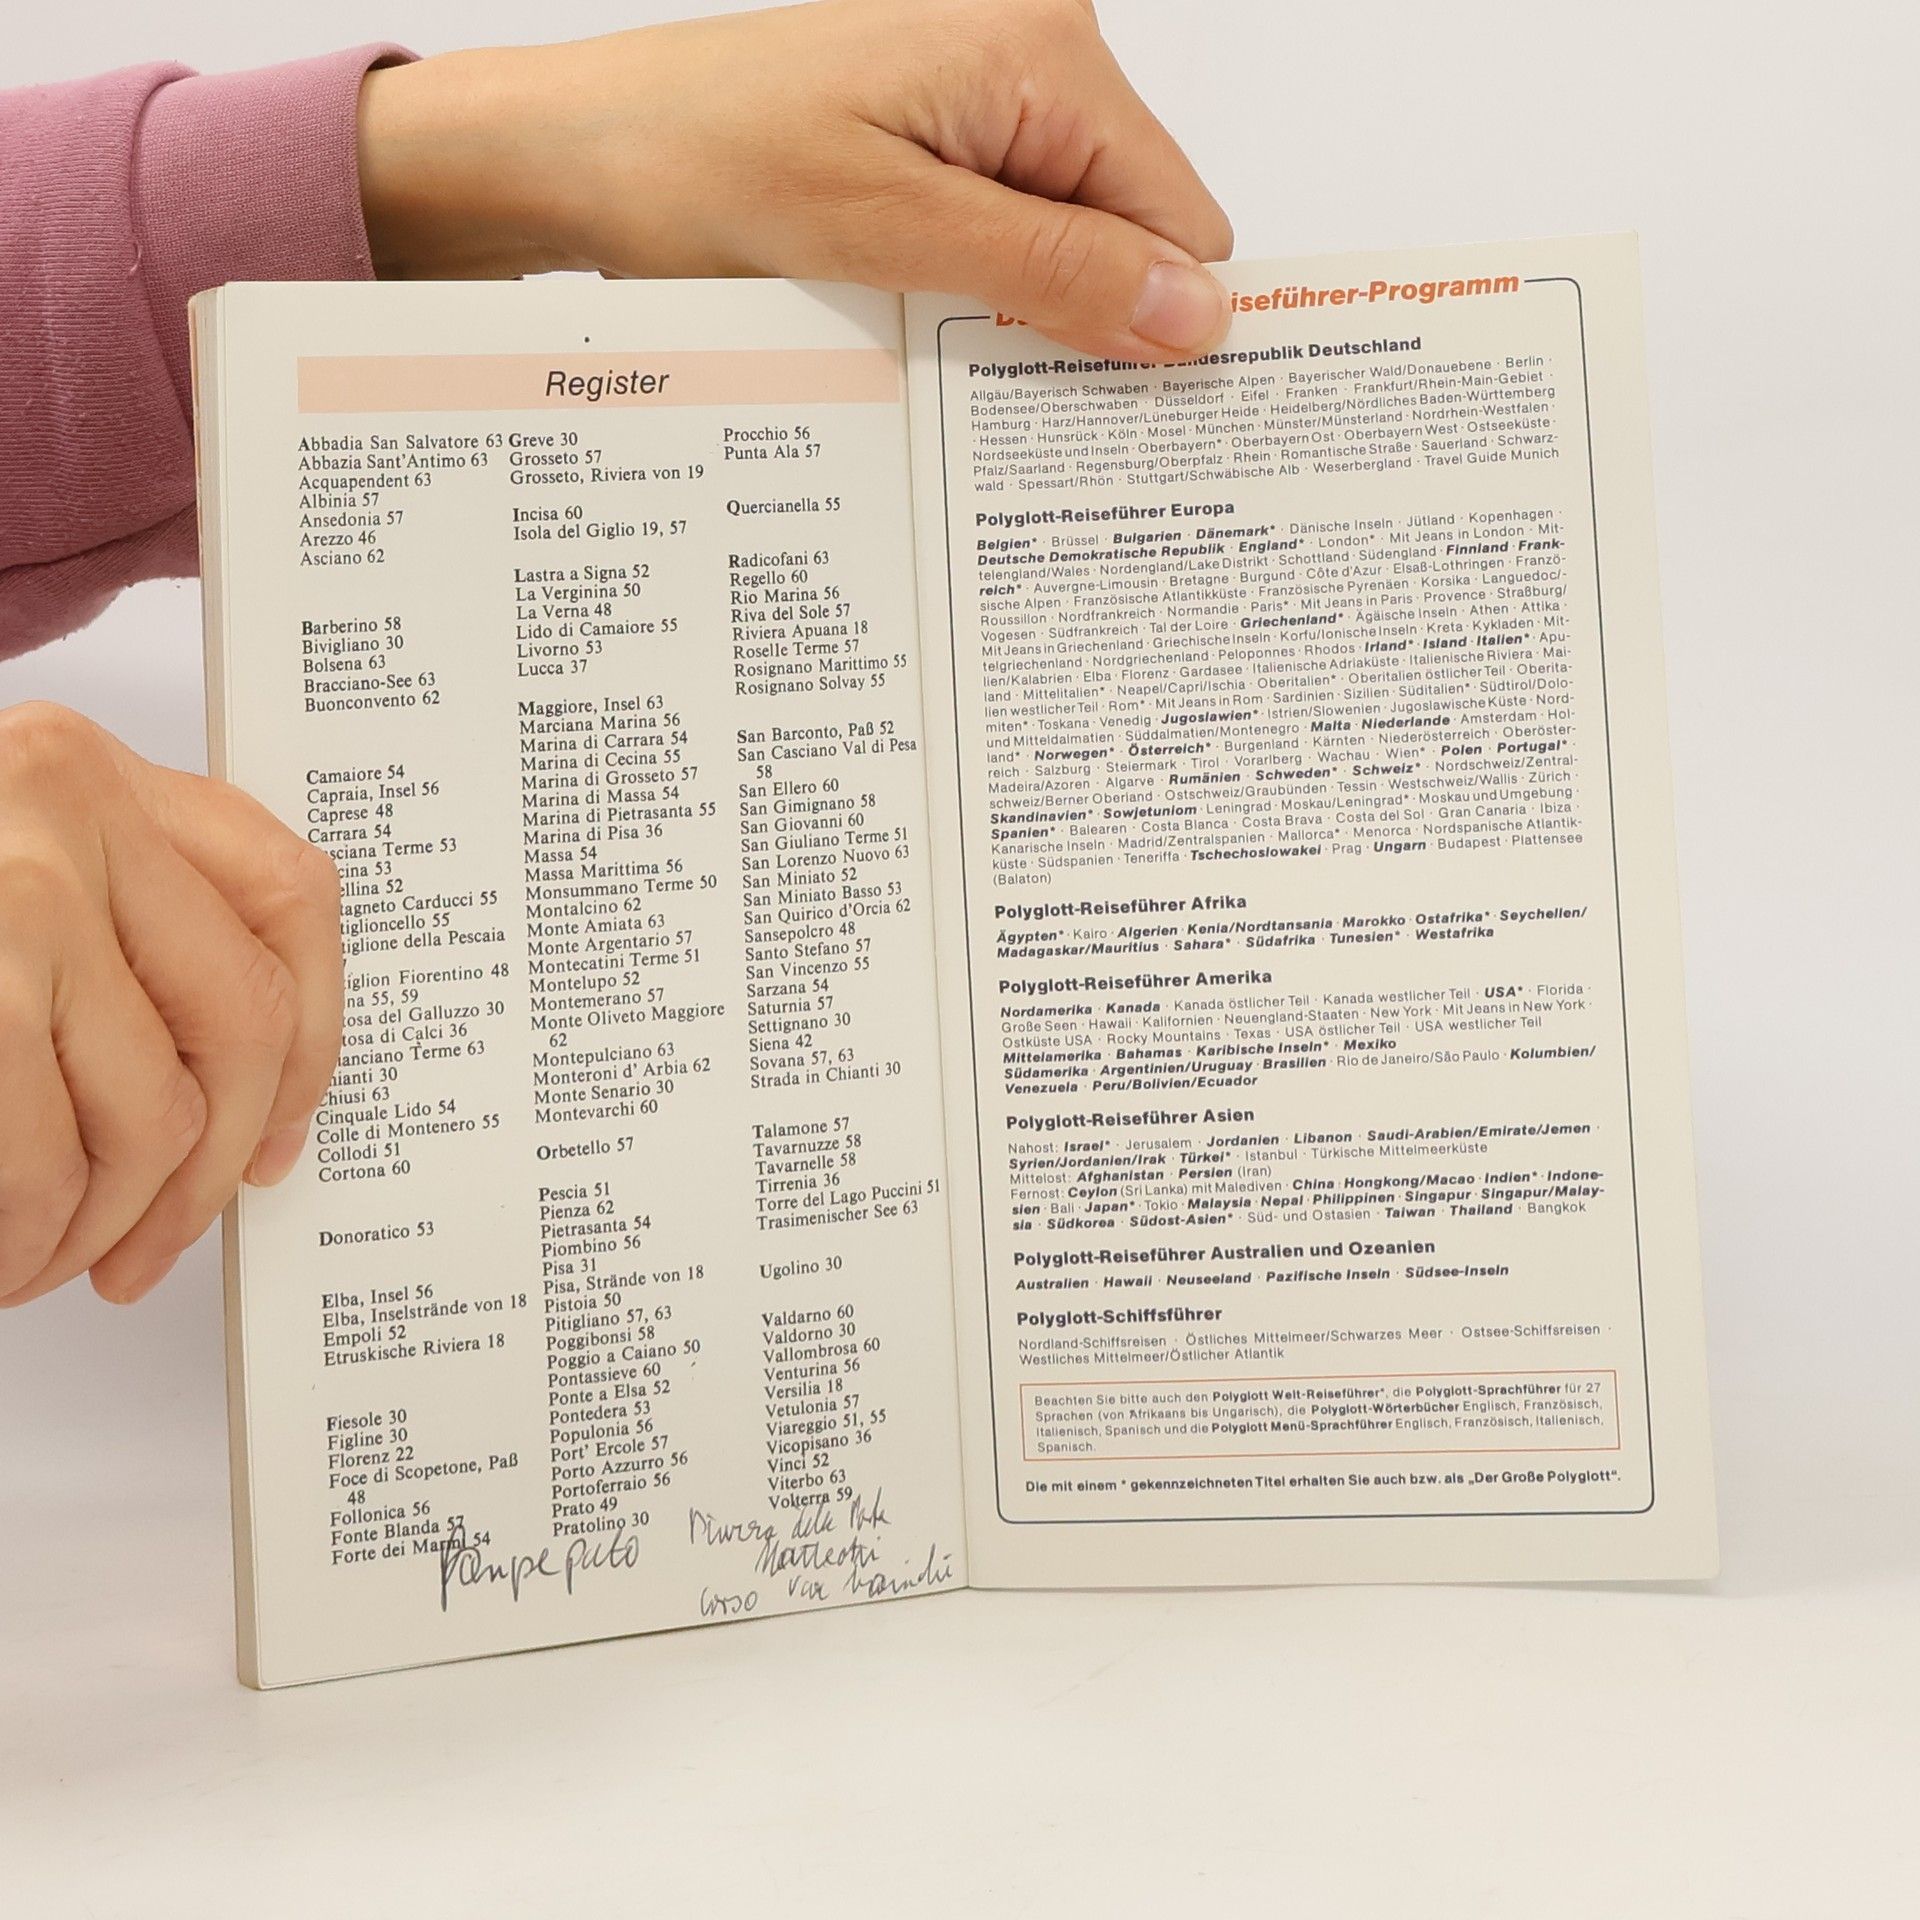 Register
Abbadia San Salvatore 63
Abbazia Sant'Antimo 63
Acquapendent 63
Albinia 57
Ansedonia 57
Arezzo 46
Asciano 62
Barberino 58
Bivigliano 30
Bolsena 63
Bracciano-See 63
Buonconvento 62
Camaiore 54
Capraia, Insel 56
Caprese 48
Carrara 54
Terme 53
53
52
Carducci 55
55
della Pescaia
Fiorentino 48
55, 59
del Galluzzo 30
di Calci 36
Terme 63
30
Chiusi 63
Cinquale Lido 54
Colle di Montenero 55
Collodi 51
Cortona 60
Donoratico 53
Elba, Insel 56
Elba, Inselstrände von 18
Empoli 52
Etruskische Riviera 18
Fiesole 30
Figline 30
Florenz 22
Foce di Scopetone, Paß
48
Follonica 56
Fonte Blanda 57
Forte dei Marmi 54
Greve 30
Grosseto 57
Grosseto, Riviera von 19
Incisa 60
Isola del Giglio 19, 57
Lastra a Signa 52
La Verginina 50
La Verna 48
Lido di Camaiore 55
Livorno 53
Lucca 37
Maggiore, Insel 63
Marciana Marina 56
Marina di Carrara 54
Marina di Cecina 55
Marina di Grosseto 57
Marina di Massa 54
Marina di Pietrasanta 55
Marina di Pisa 36
Massa 54
Massa Marittima 56
Monsummano Terme 50
Montalcino 62
Monte Amiata 63
Monte Argentario 57
Montecatini Terme 51
Montelupo 52
Montemerano 57
Monte Oliveto Maggiore
62
Montepulciano 63
Monteroni d' Arbia 62
Monte Senario 30
Montevarchi 60
Orbetello 57
Pescia 51
Pienza 62
Pietrasanta 54
Piombino 56
Pisa 31
Pisa, Strände von 18
Pistoia 50
Pitigliano 57, 63
Poggibonsi 58
Poggio a Caiano 50
Pontassieve 60
Ponte a Elsa 52
Pontedera 53
Populonia 56
Port' Ercole 57
Porto Azzurro 56
Portoferraio 56
Prato 49
Pratolino 30
Procchio 56
Punta Ala 57
Quercianella 55
Radicofani 63
Regello 60
Rio Marina 56
Riva del Sole 57
Riviera Apuana 18
Roselle Terme 57
Rosignano Marittimo 55
Rosignano Solvay 55
San Barconto, Paß 52
San Casciano Val di Pesa
58
San Ellero 60
San Gimignano 58
San Giovanni 60
San Giuliano Terme 51
San Lorenzo Nuovo 63
San Miniato 52
San Miniato Basso 53
San Quirico d'Orcia 62
Sansepolcro 48
Santo Stefano 57
San Vincenzo 55
Sarzana 54
Saturnia 57
Settignano 30
Siena 42
Sovana 57, 63
Strada in Chianti 30
Talamone 57
Tavarnuzze 58
Tavarnelle 58
Tirrenia 36
Torre del Lago Puccini 51
Trasimenischer See 63
Ugolino 30
Valdarno 60
Valdorno 30
Vallombrosa 60
Venturina 56
Versilia 18
Vetulonia 57
Viareggio 51, 55
Vicopisano 36
Vinci 52
Viterbo 63
Volterra 59
Matteotti
Corso
Reiseführer-Programm
Polyglott-Reiseführer Bundesrepublik Deutschland
Allgäu/Bayerisch Schwaben · Bayerische Alpen · Bayerischer Wald/Donauebene · Berlin ·
Bodensee/Oberschwaben · Düsseldorf · Eifel · Franken · Frankfurt/Rhein-Main-Gebiet ·
Hamburg · Harz/Hannover/Lüneburger Heide · Heidelberg/Nördliches Baden-Württemberg
· Hessen · Hunsrück · Köln · Mosel · München · Münster/Münsterland · Nordrhein-Westfalen ·
Nordseeküste und Inseln · Oberbayern* · Oberbayern Ost · Oberbayern West · Ostseeküste ·
Pfalz/Saarland · Regensburg/Oberpfalz · Rhein · Romantische Straße · Sauerland · Schwarz-
wald · Spessart/Rhön · Stuttgart/Schwäbische Alb · Weserbergland · Travel Guide Munich
Polyglott-Reiseführer Europa
Belgien* · Brüssel · Bulgarien · Dänemark* · Dänische Inseln · Jütland · Kopenhagen ·
Deutsche Demokratische Republik · England* · London* · Mit Jeans in London · Mit-
telengland/Wales · Nordengland/Lake Distrikt · Schottland · Südengland · Finnland · Frank-
reich* · Auvergne-Limousin · Bretagne · Burgund · Côte d'Azur · Elsaß-Lothringen · Franzö-
sische Alpen · Französische Atlantikküste · Französische Pyrenäen · Korsika · Languedoc/-
Roussillon · Nordfrankreich · Normandie · Paris* · Mit Jeans in Paris · Provence · Straßburg/
Vogesen · Südfrankreich · Tal der Loire · Griechenland* · Ägäische Inseln · Athen · Attika ·
Mit Jeans in Griechenland · Griechische Inseln · Korfu/Ionische Inseln · Kreta · Kykladen · Mit-
telgriechenland · Nordgriechenland · Peloponnes · Rhodos · Irland* · Island · Italien* · Apu-
lien/Kalabrien · Elba · Florenz · Gardasee · Italienische Adriaküste · Italienische Riviera · Mai-
land · Mittelitalien* · Neapel/Capri/Ischia · Oberitalien* · Oberitalien östlicher Teil · Oberita-
lien westlicher Teil · Rom* · Mit Jeans in Rom · Sardinien · Sizilien · Süditalien* · Südtirol/Dolo-
miten* · Toskana · Venedig · Jugoslawien* · Istrien/Slowenien · Jugoslawische Küste · Nord-
und Mitteldalmatien · Süddalmatien/Montenegro · Malta · Niederlande · Amsterdam · Hol-
land* · Norwegen* · Österreich* · Burgenland · Kärnten · Niederösterreich · Oberöster-
reich · Salzburg · Steiermark · Tirol · Vorarlberg · Wachau · Wien* · Polen · Portugal* ·
Madeira/Azoren · Algarve · Rumänien · Schweden* · Schweiz* · Nordschweiz/Zentral-
schweiz/Berner Oberland · Ostschweiz/Graubünden · Tessin · Westschweiz/Wallis · Zürich ·
Skandinavien* · Sowjetuniom · Leningrad · Moskau/Leningrad* · Moskau und Umgebung ·
Spanien* · Balearen · Costa Blanca · Costa Brava · Costa del Sol · Gran Canaria · Ibiza ·
Kanarische Inseln · Madrid/Zentralspanien · Mallorca* · Menorca · Nordspanische Atlantik-
küste · Südspanien · Teneriffa · Tschechoslowakei · Prag · Ungarn · Budapest · Plattensee
(Balaton)
Polyglott-Reiseführer Afrika
Ägypten* · Kairo · Algerien · Kenia/Nordtansania · Marokko · Ostafrika* · Seychellen/
Madagaskar/Mauritius · Sahara* · Südafrika · Tunesien* · Westafrika
Polyglott-Reiseführer Amerika
Nordamerika · Kanada · Kanada östlicher Teil · Kanada westlicher Teil · USA* · Florida ·
Große Seen · Hawaii · Kalifornien · Neuengland-Staaten · New York · Mit Jeans in New York ·
Ostküste USA · Rocky Mountains · Texas · USA östlicher Teil · USA westlicher Teil
Mittelamerika · Bahamas · Karibische Inseln* · Mexiko
Südamerika · Argentinien/Uruguay · Brasilien · Rio de Janeiro/São Paulo · Kolumbien/
Venezuela · Peru/Bolivien/Ecuador
Polyglott-Reiseführer Asien
Nahost: Israel* · Jerusalem · Jordanien · Libanon · Saudi-Arabien/Emirate/Jemen ·
Syrien/Jordanien/Irak · Türkei* · Istanbul · Türkische Mittelmeerküste
Mittelost: Afghanistan · Persien (Iran)
Fernost: Ceylon (Sri Lanka) mit Malediven · China · Hongkong/Macao · Indien* · Indone-
sien · Bali · Japan* · Tokio · Malaysia · Nepal · Philippinen · Singapur · Singapur/Malay-
sia · Südkorea · Südost-Asien* · Süd- und Ostasien · Taiwan · Thailand · Bangkok
Polyglott-Reiseführer Australien und Ozeanien
Australien · Hawaii · Neuseeland · Pazifische Inseln · Südsee-Inseln
Polyglott-Schiffsführer
Nordland-Schiffsreisen · Östliches Mittelmeer/Schwarzes Meer · Ostsee-Schiffsreisen ·
Westliches Mittelmeer/Östlicher Atlantik
Beachten Sie bitte auch den Polyglott Welt-Reiseführer*, die Polyglott-Sprachführer für 27
Sprachen (von Afrikaans bis Ungarisch), die Polyglott-Wörterbücher Englisch, Französisch,
Italienisch, Spanisch und die Polyglott Menü-Sprachführer Englisch, Französisch, Italienisch,
Spanisch.
Die mit einem * gekennzeichneten Titel erhalten Sie auch bzw. als „Der Große Polyglott".